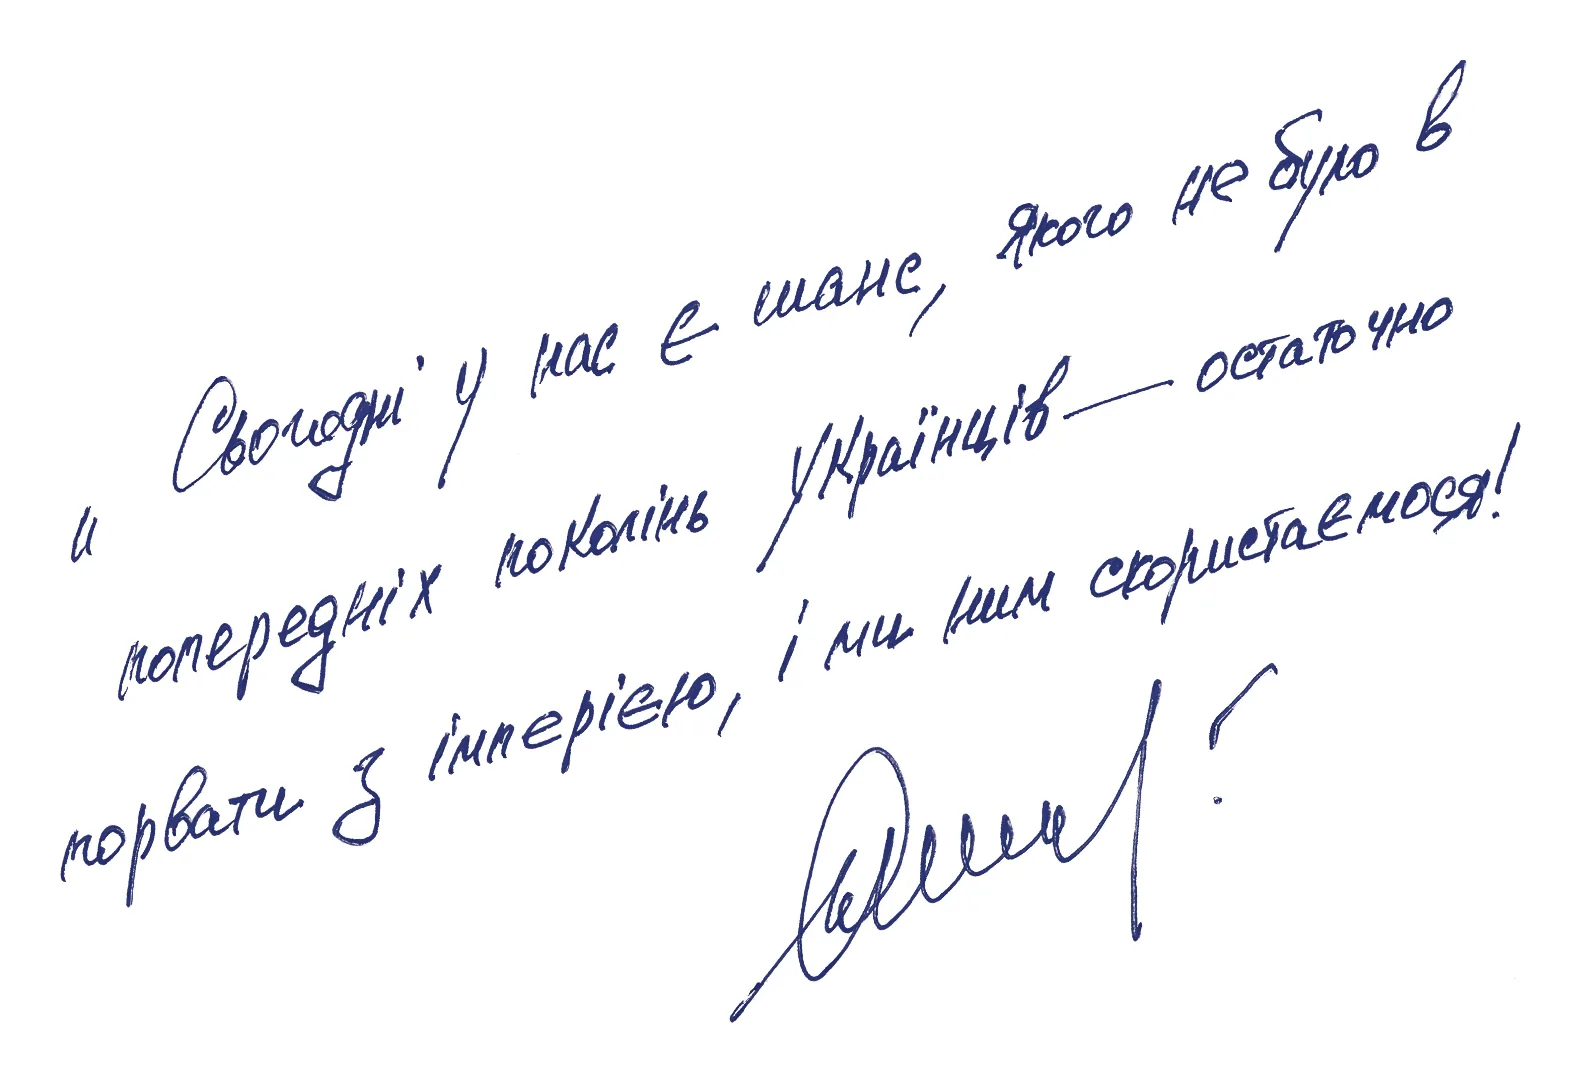 "Сьогодні у нас є шанс, якого не було в
попередніх поколінь українців — остаточно
порвати з імперією, і ми ним скористаємося!